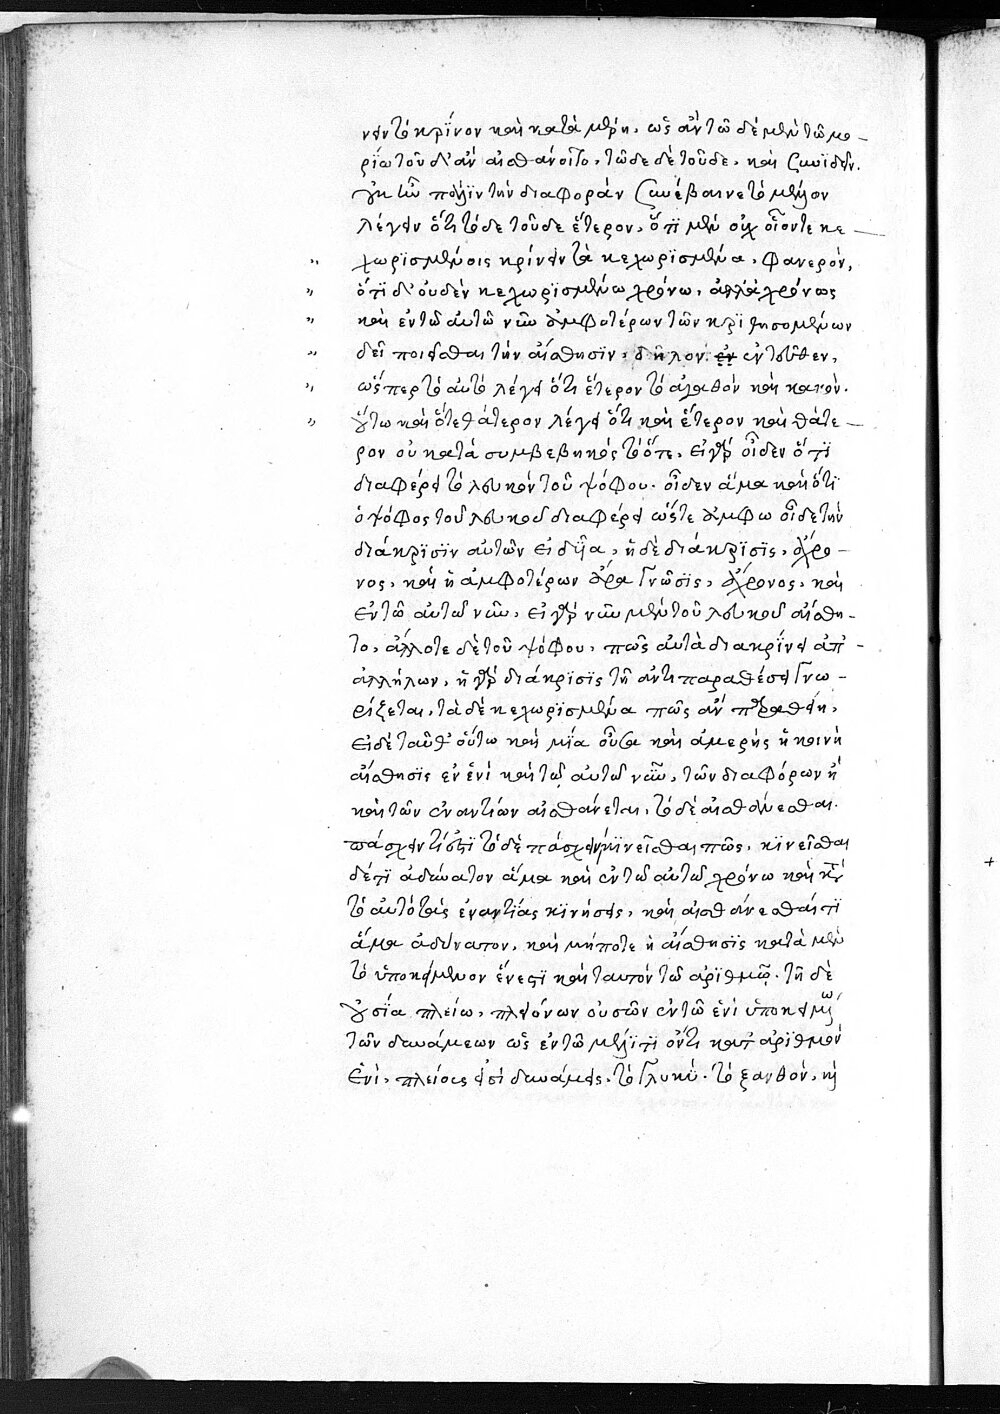 νειν τὸ κρῖνον καὶ κατὰ μέρη, ὡς ἂν τῶδε μὲν τῶ μο
ρίω τοῦδ' ἂν αἰσθάνοιτο, τῶδε δὲ τοῦδε, καὶ συνιδεῖν.
οὐκ ἦν ποιεῖν τὴν διαφορὰν συνέβαινε τὸ μέλλον
λέγειν ὅτι τόδε τοῦδε ἕτερον, ὅτι μὲν οὐχ οἷόντε κε
" χωρισμένοις κρίνειν τὰ κεχωρισμένα, φανερόν,
" ὅτι δ' οὐδὲν κεχωρισμένω χρόνω, ἀλλὰ χρόνως
" καὶ ἐν τῶ αὐτῶ νῦν ἀμφοτέρων τῶν κριθησομένων
" δεῖ ποιεῖσθαι τὴν αἴσθησιν, δῆλον ἐντεῦθεν,
" ὥσπερ τὸ αὐτὸ λέγει ὅτι ἕτερον τὸ ἀγαθὸν καὶ κακόν.
" οὕτω καὶ ὅτε θάτερον λέγει ὅτι καὶ ἕτερον καὶ θάτε
ρον οὐ κατὰ συμβεβηκὸς τὸ ὅτε, εἰ γὰρ οἶδεν ὅτι
διαφέρει τὸ λευκὸν τοῦ ψόφου. οἶδεν ἅμα καὶ ὅτι
ὁ ψόφος τοῦ λευκοῦ διαφέρει ὥστε ἄμφω οἶδε τὴν
διάκρισιν αὐτῶν εἰδυῖα, ἡ δὲ διάκρισις, ἄχρο
νος, καὶ ἡ ἀμφοτέρων ἄρα γνῶσις, ἄχρονος, καὶ
ἐν τῶ αὐτῶ νῦν, εἰ γὰρ νῦν μὲν τοῦ λευκοῦ αἴσθη
το, ἄλλοτε δὲ τοῦ ψόφου, πῶς αὐτὰ διακρίνει ἀπ'
ἀλλήλων, ἡ γὰρ διάκρισις τῆ ἀντιπαραθέσει γνω
ρίζεται, τὰ δὲ κεχωρισμένα πῶς ἂν παραθείη,
εἰ δὲ ταῦθ' οὕτω καὶ μία οὖσα καὶ ἀμερὴς ἡ κοινὴ
αἴσθησις ἐν ἑνὶ καὶ τῶ αὐτῶ νῦν, τῶν διαφόρων ἢ
καὶ τῶν ἐναντίων αἰσθάνεται, τὸ δὲ αἰσθάνεσθαι
πάσχειν τί ἐστι τὸ δὲ πάσχειν κινεῖσθαι πῶς, κινεῖσθαι
δέ τι ἀδύνατον ἅμα καὶ ἐν τῶ αὐτῶ χρόνω καὶ κατὰ
τὸ αὐτὸ τὰς ἐναντίας κινήσεις, καὶ αἰσθάνεσθαί τι
ἅμα ἀδύνατον, καὶ μήποτε ἡ αἴσθησις κατὰ μὲν
τὸ ὑποκείμενον ἕν ἐστι καὶ ταυτὸν τῶ ἀριθμῶ. τῆ δὲ
οὐσία πλείω, πλειόνων οὐσῶν ἐν τῶ ἑνὶ ὑποκειμένω
τῶν δυνάμεων ὡς ἐν τῶ μέλιτι ὄντι κατ' ἀριθμὸν
ἑνὶ, πλείους εἰσὶ δυνάμεις, τὸ γλυκύ. τὸ ξανθόν, καὶ